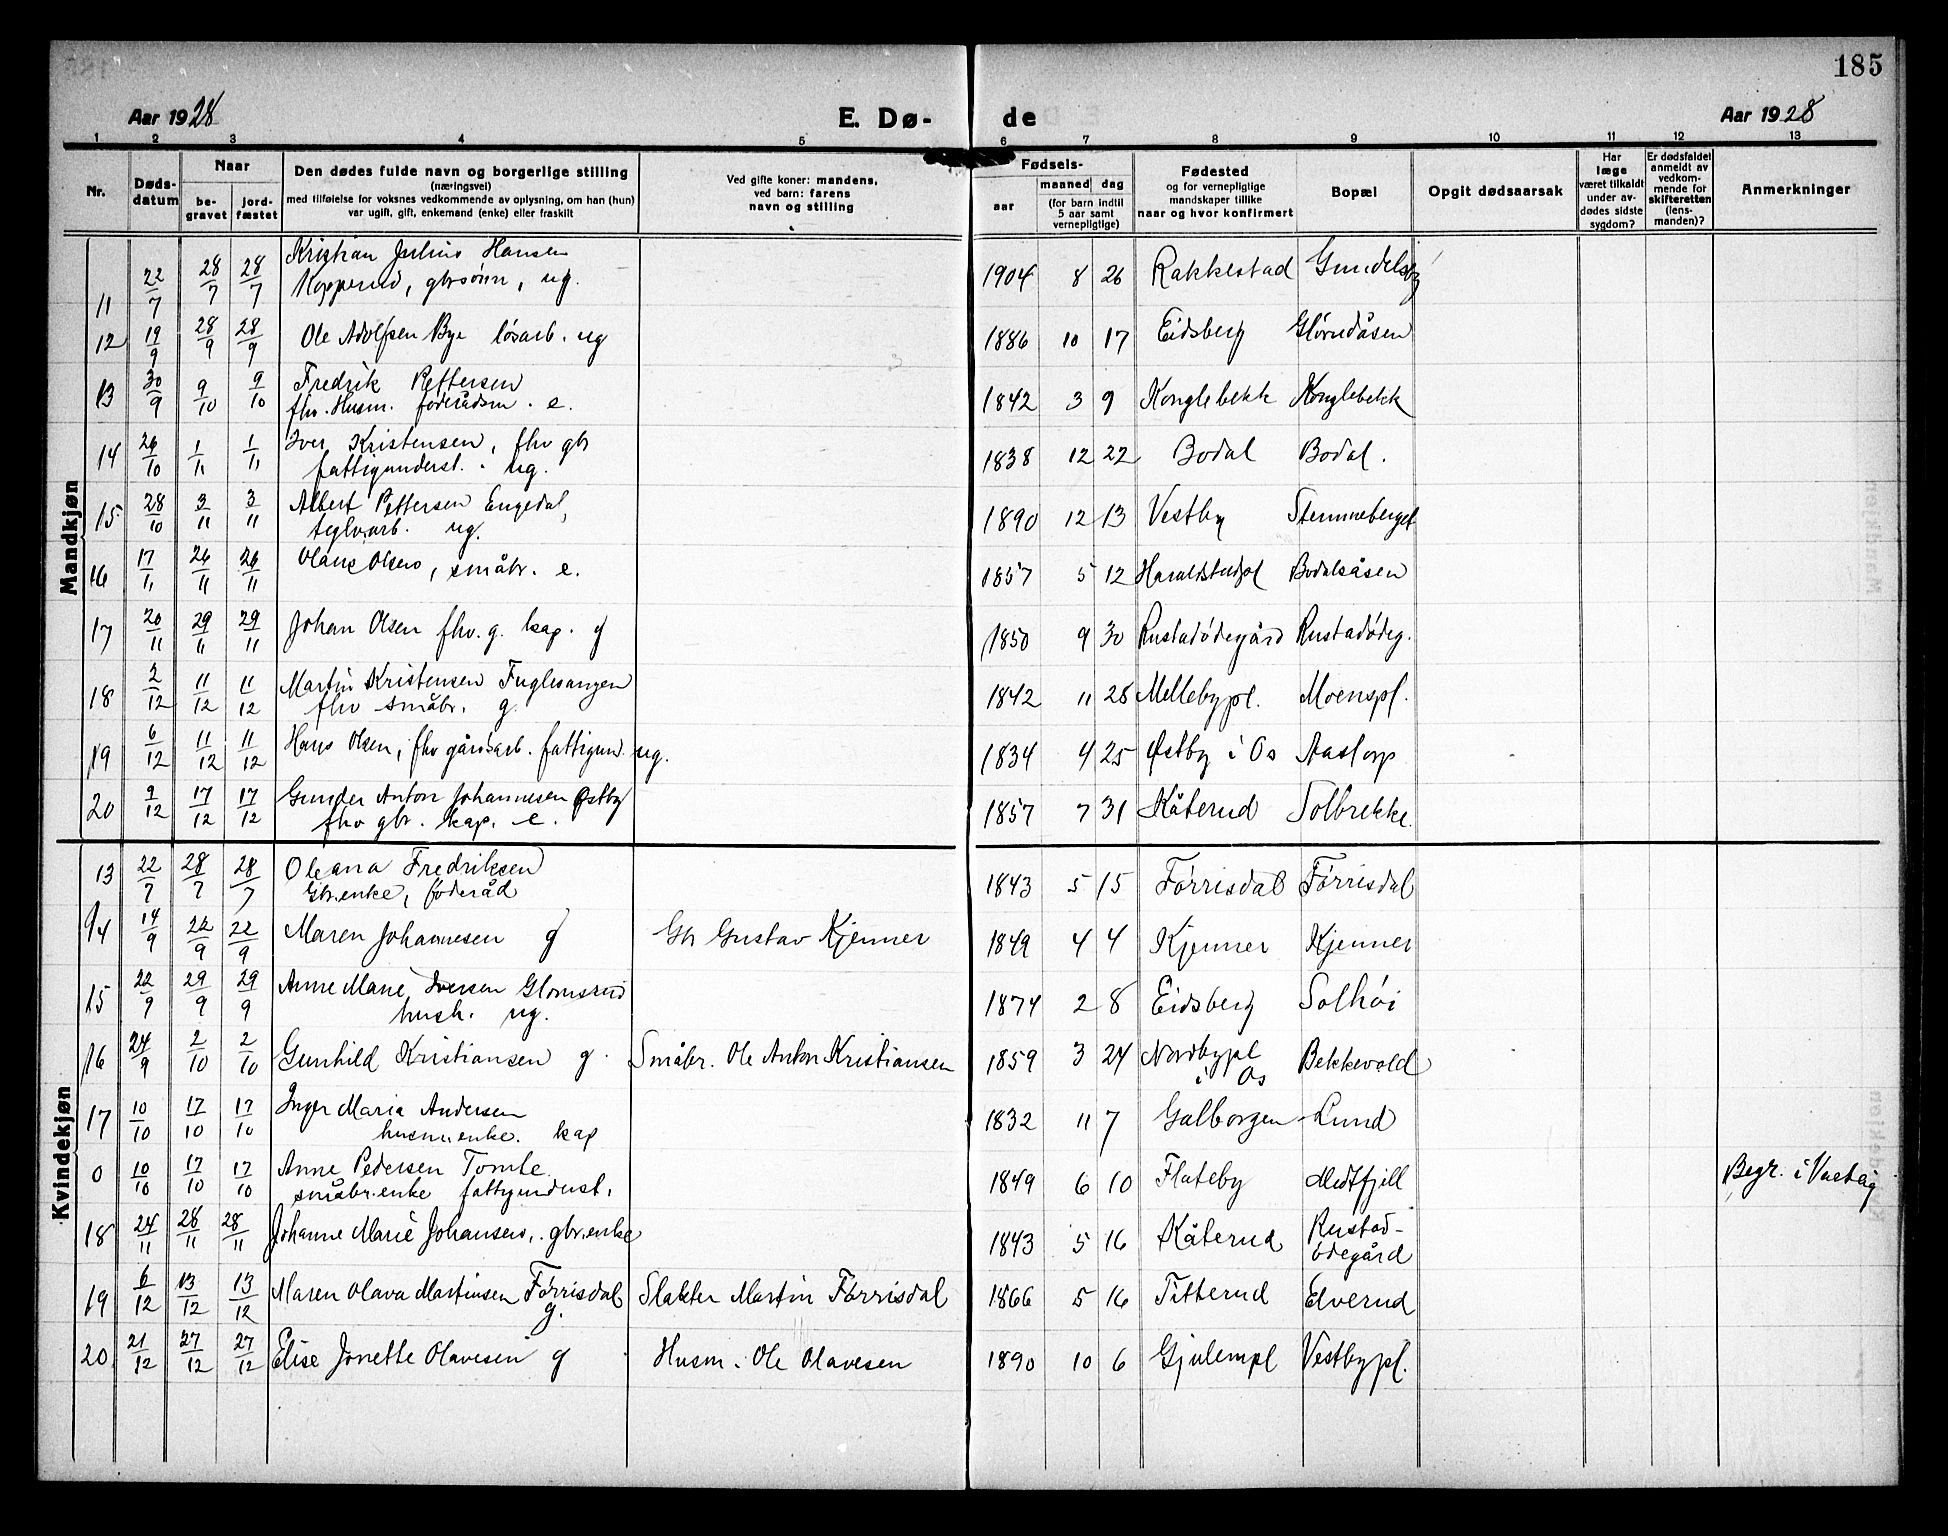 185
Aar 1928 E. Dø- de Aar 1928
1 2 3 4 5 6 7 8 9 10 11 12 13
Nr.
Døds-
datum
Naar
be-
gravet
jord-
fæstet
Den dødes fulde navn og borgerlige stilling
(næringsvei)
med tilføielse for voksnes vedkommende av oplysning, om han (hun)
var ugift, gift, enkemand (enke) eller fraskilt
Ved gifte koner: mandens,
ved barn: farens
navn og stilling
Fødsels-
aar
maaned dag
(for barn indtil
5 aar samt
vernepligtige)
Fødested
og for vernepligtige
mandskaper tillike
naar og hvor konfirmert
Bopæl
Opgit dødsaarsak
Har
læge
været tilkaldt
under av-
dødes sidste
sygdom?
Er dødsfaldet
anmeldt av
vedkom-
mende for
skifteretten
(lens-
manden)?
Anmerkninger
Mandkjøn
11 22/7 28/7 28/7 Kristian Julius Hansen
Kopperud, gbrsønn, ug. 1904 8 26 Rakkestad Gundelsby
12 19/9 28/9 28/9 Ole Adolfsen Bye løsarb. ug 1886 10 17 Eidsberg Glørudåsen
13 30/9 9/10 9/10 Fredrik Pettersen
fhv. Husm. føderådsm. e. 1842 3 9 Konglebekk Konglebekk
14 26/10 1/11 1/11 Iver Kristensen, fhv gbr
fattigunderst. ug. 1838 12 22 Bodal Bodal.
15 28/10 3/11 3/11 Albert Pettersen Engedal,
teglv.arb. ug. 1890 12 13 Vestby Stemmeberget
16 17/11 26/11 26/11 Olaus Olsen, småbr. e. 1857 5 12 Haraldstadpl Bodalsåsen
17 20/11 29/11 29/11 Johan Olsen fhv. g. kap. g 1850 9 30 Rustadødegård Rustadødeg.
18 2/12 11/12 11/12 Martin Kristensen Fuglesangen
fhv småbr. g. 1842 11 28 Mellebypl. Moenspl.
19 6/12 11/12 11/12 Hans Olsen, fhv gårdsarb. fattigund. ug. 1834 4 25 Østby i Os Aastorp
20 9/12 17/12 17/12 Gunder Anton Johannesen Østby
fhv gbr. kap. e. 1857 7 31 Kåterud Solbrekke.
Kvindekjøn
13 22/7 28/7 28/7 Oleana Fredriksen
Gbr.enke, føderåd 1843 5 15 Førrisdal Førrisdal
14 14/9 22/9 22/9 Maren Johannesen g Gbr Gustav Kjenner 1849 4 4 Kjenner Kjenner
15 22/9 29/9 29/9 Anne Marie Iversen Glomsrud
hush. ug. 1874 2 8 Eidsberg Solhøi
16 24/9 2/10 2/10 Gunhild Kristiansen g. Småbr. Ole Anton Kristiansen 1859 3 24 Nordbypl
i Os Bekkevold
17 10/10 17/10 17/10 Inger Maria Andersen
husm.enke. kap 1832 11 7 Galborgen Lund
0 10/10 17/10 17/10 Anne Pedersen Tomte
småbr.enke fattigunderst. 1849 6 10 Flateby Medtfjell Begr. i
18 24/11 28/11 28/11 Johanne Marie Johansen, gbr.enke 1843 5 16 Kåterud Rustad-
ødegård
19 6/12 13/12 13/12 Maren Olava Martinsen Førrisdal
g. Slakter Martin Førrisdal 1866 5 16 Titterud Elverud
20 21/12 27/12 27/12 Elise Jonette Olavesen g Husm. Ole Olavesen 1890 10 6 Gjulempl Vestbypl.